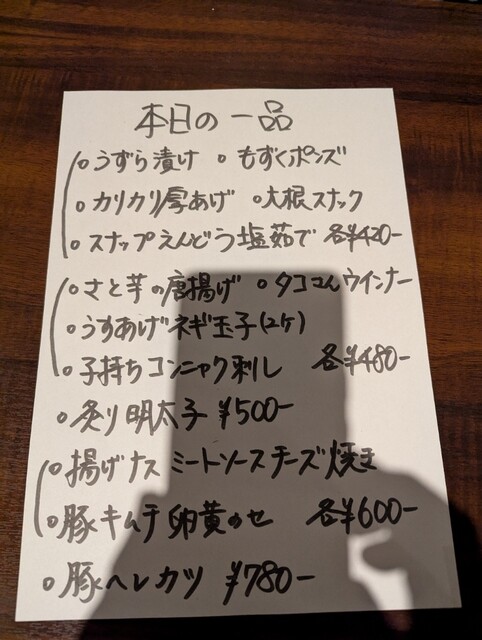 本日の一品
○うずら漬け ○もずくポンズ
○カリカリ厚あげ ○大根スナック
○スナップえんどう塩茹で 各¥420-
○さと芋の唐揚げ ○タコさんウインナー
○うすあげネギ玉子(2ケ)
○子持ちコンニャク刺し 各¥480-
○炙り明太子 ¥500-
○揚げナス ミートソースチーズ焼き
○豚キムチ卵黄のせ 各¥600-
○豚ヘレカツ ¥780-